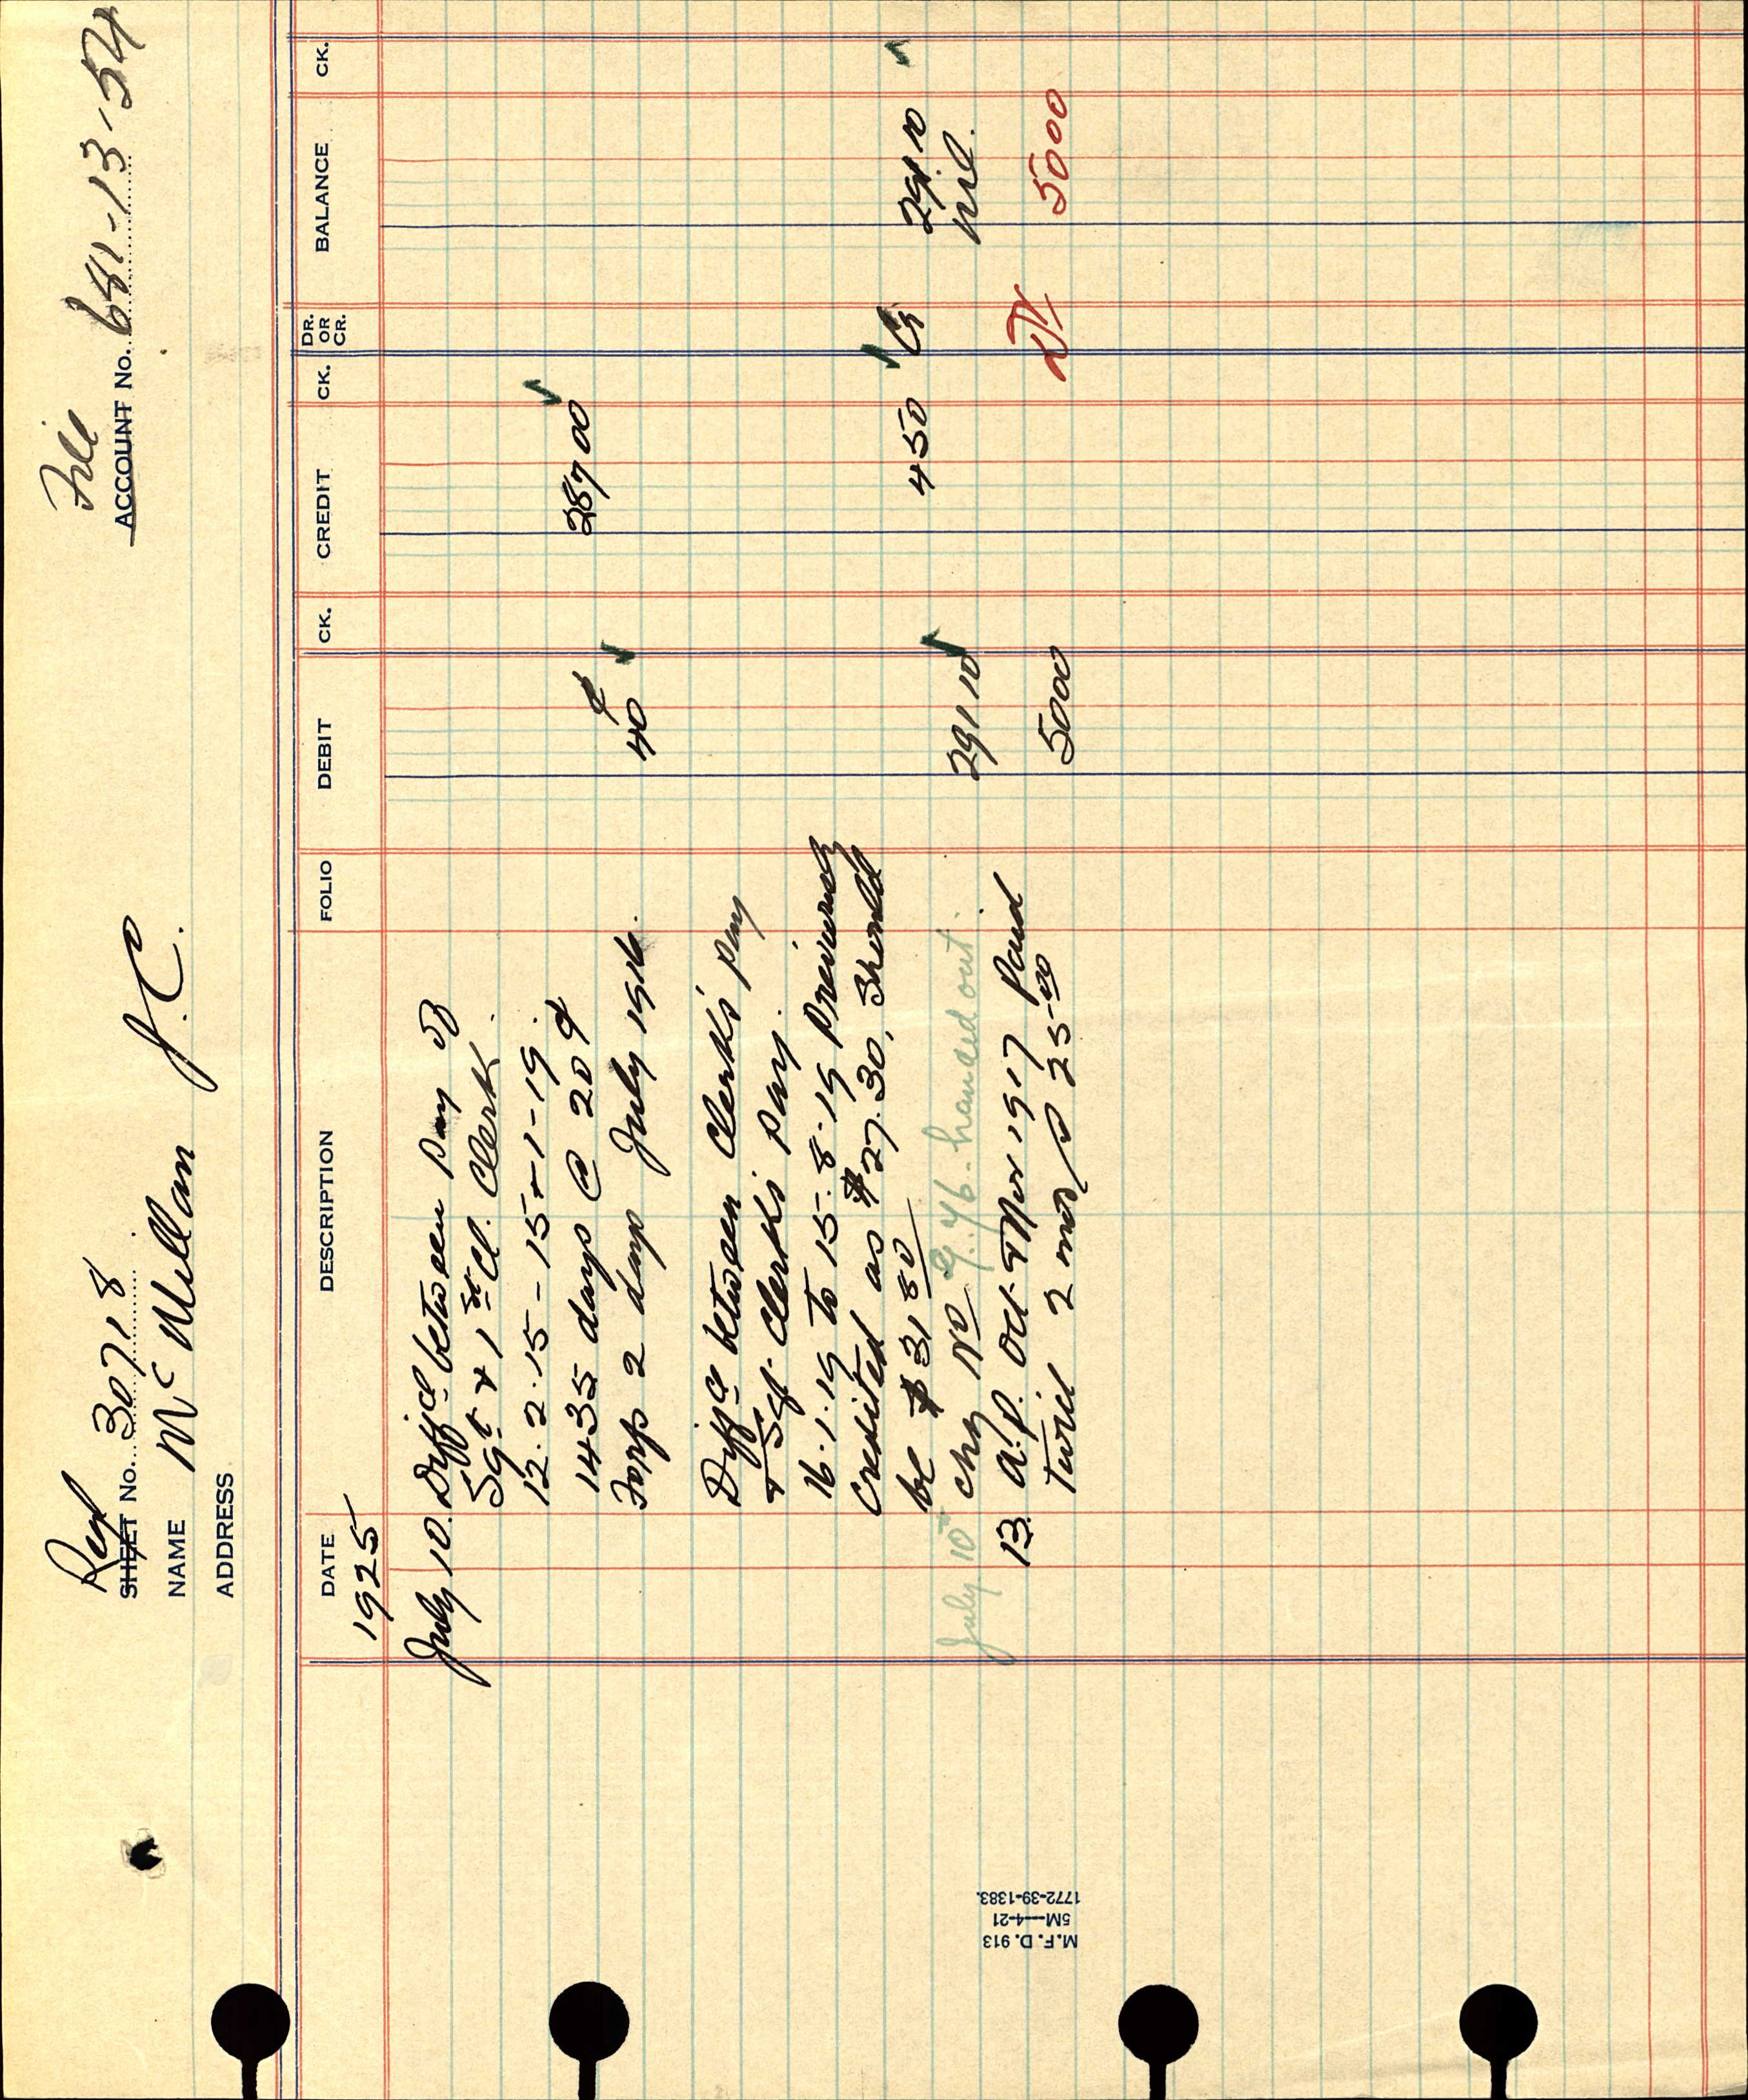 File
Reg
SHEET No. 30718
ACCOUNT No. 681-13-54
NAME McMillan J.C.
ADDRESS
DATE DESCRIPTION FOLIO DEBIT CK. CREDIT CK. DR. OR CR. BALANCE CK.
1925
July 10. Diffce between pay of
Sgt & 1st Cl. Clerk.
12.2.15 - 15-1-19.
1435 days @ 20¢ 287 00 ✓
Forf 2 days July 1916. 40¢ ✓
Diffce between Clerk's pay
& Sgt. Clerk's pay.
16.1.19 to 15.8.19 Previously
credited as $27.30, should
be $31 80 4 50 ✓ Cr 291 10 ✓
July 10th chq No 9.46. handed out. 291 10 ✓ nil.
13. A.P. Oct & Nov 1917 Paid
twice 2 mos @ 25 00 50 00 Dr 50 00
M.F.D. 913
5M-4-21
1772-39-1383.